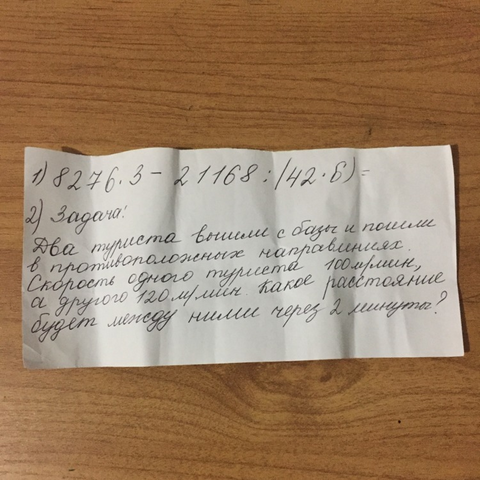 1) 8276·3 - 21168:(42·6)=
2) Задача!
Два туриста вышли с базы и пошли
в противоположных направлениях.
Скорость одного туриста 100м/мин,
а другого 120 м/мин. Какое расстояние
будет между ними через 2 минуты?